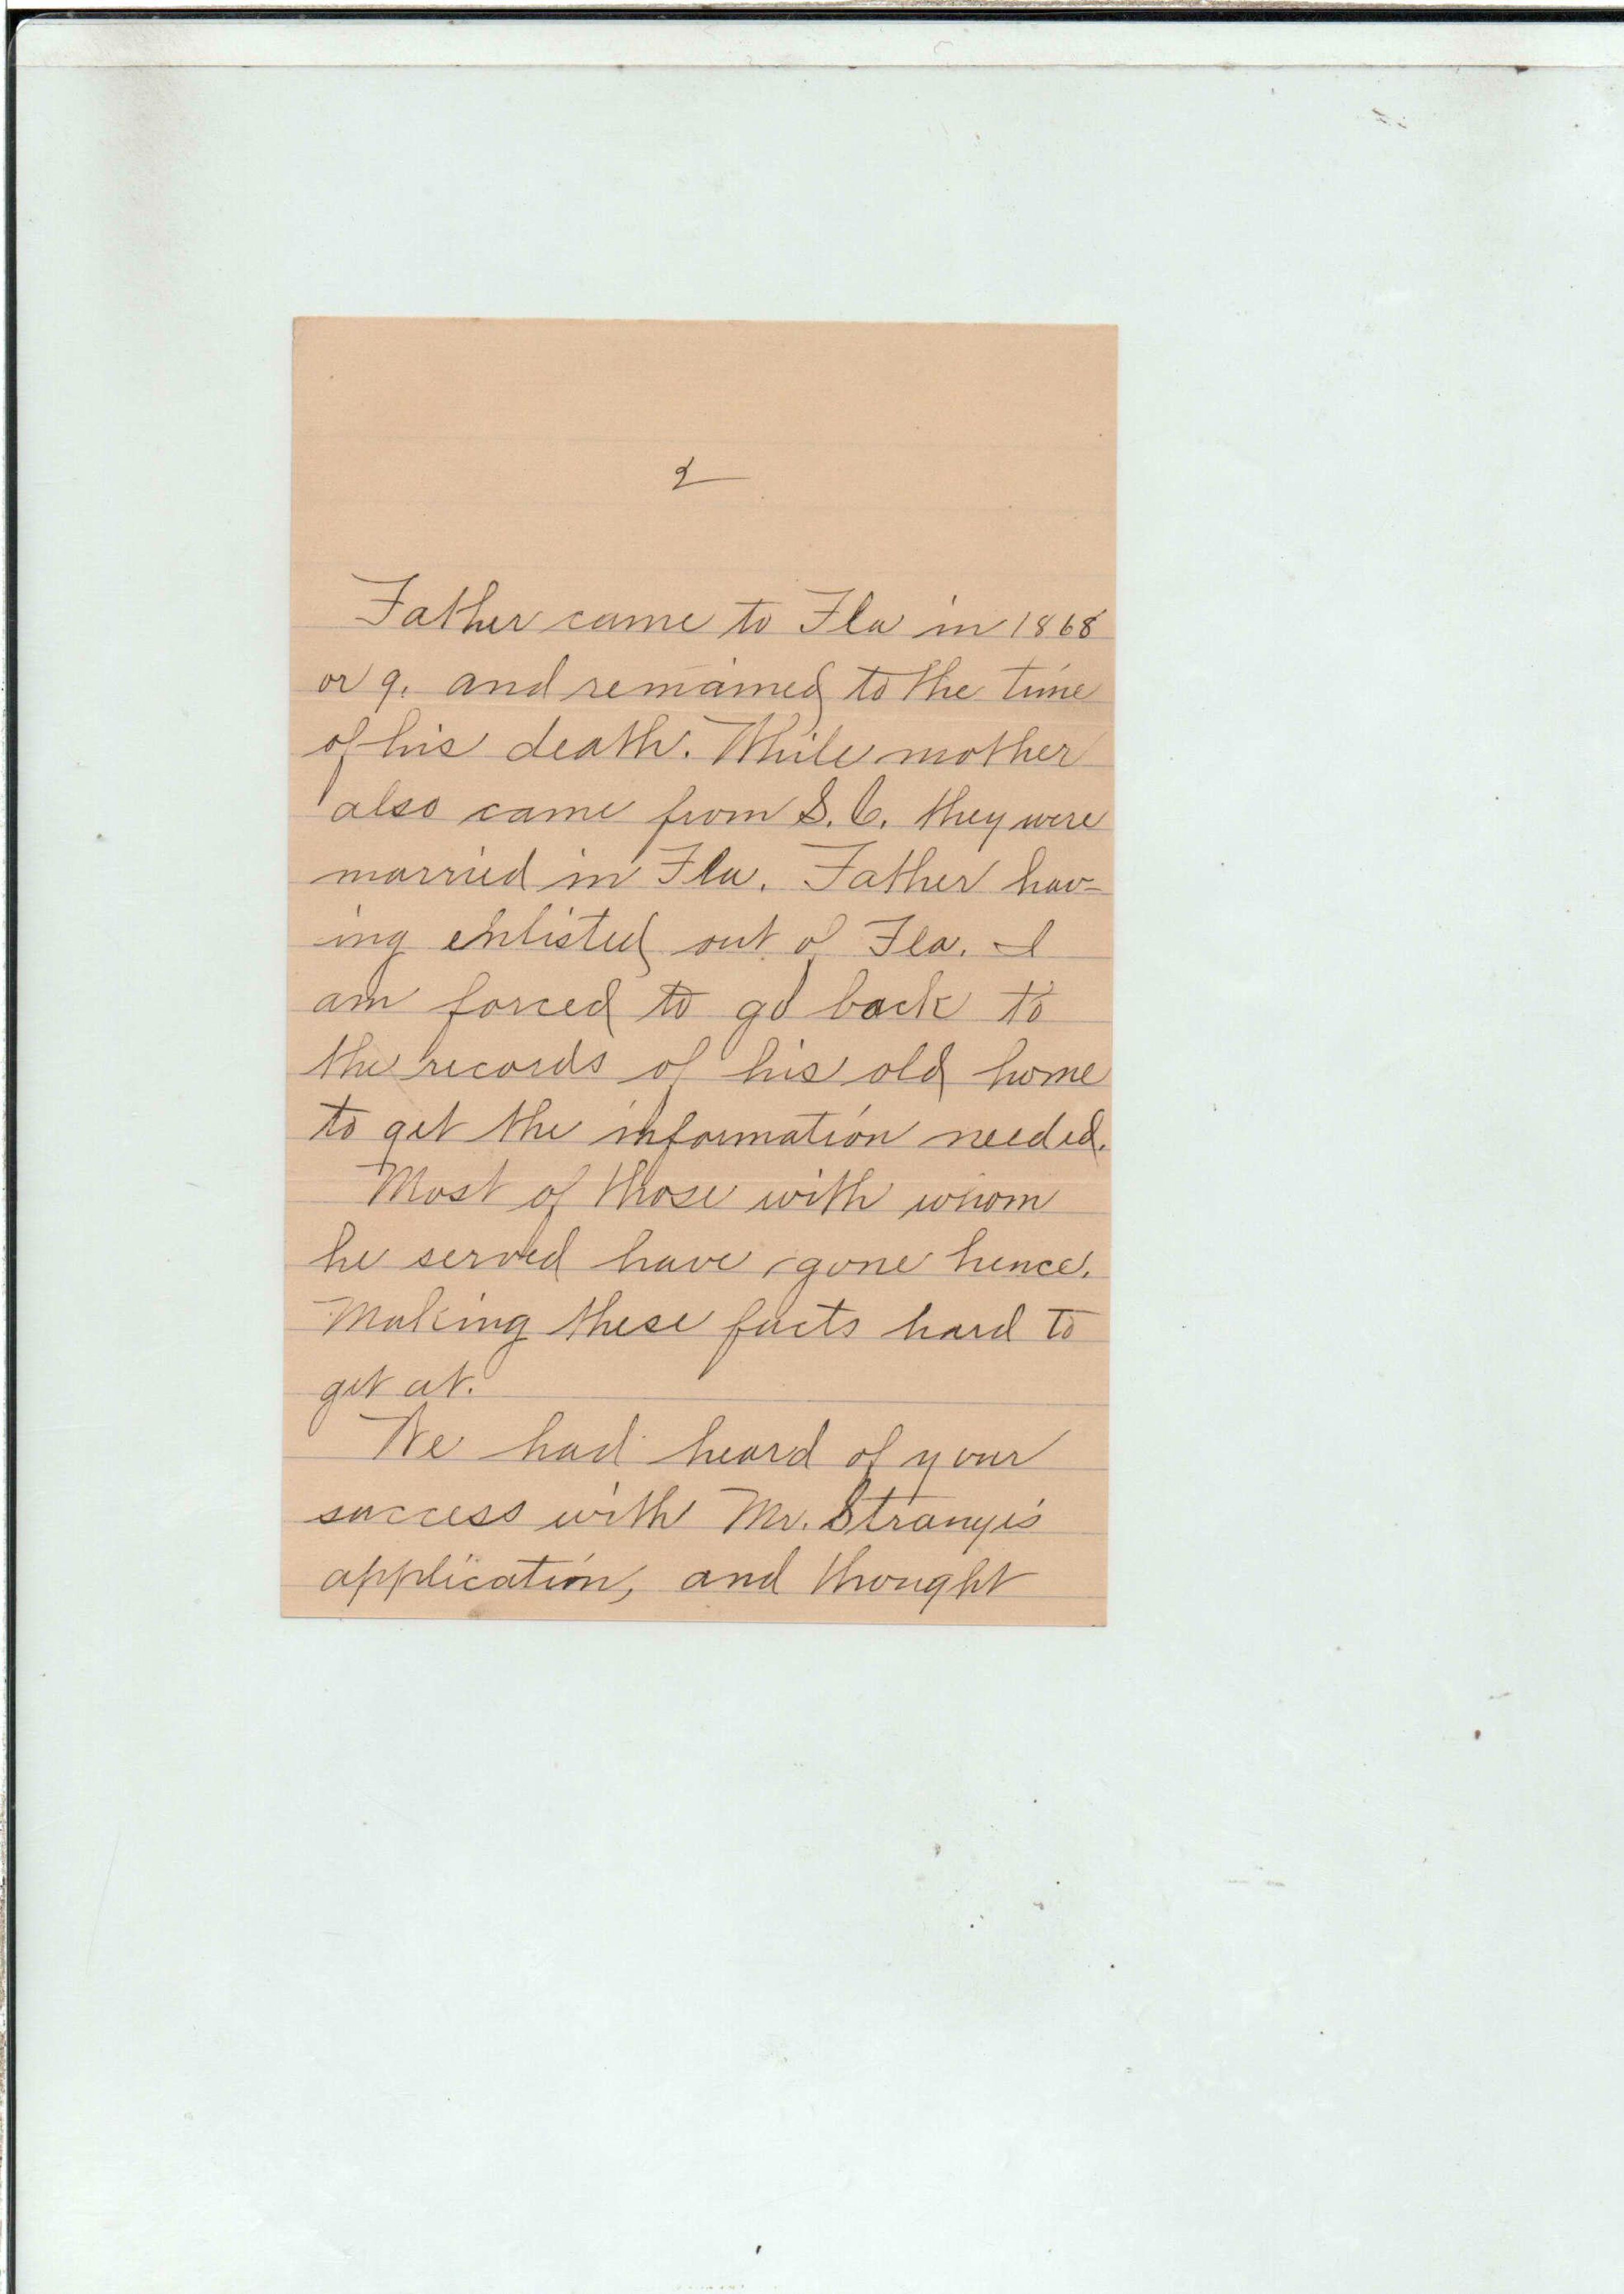 2
Father came to Fla in 1868
or 9. and remained to the time
of his death. While mother
also came from S.C. they were
married in Fla. Father hav-
ing enlisted out of Fla. I
am forced to go back to
the records of his old home
to get the information needed.
Most of those with whom
he served have gone hence.
Making these facts hard to
get at.
We had heard of your
success with Mr.
application, and thought